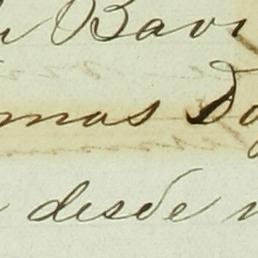 Bavi
mas Do
desde